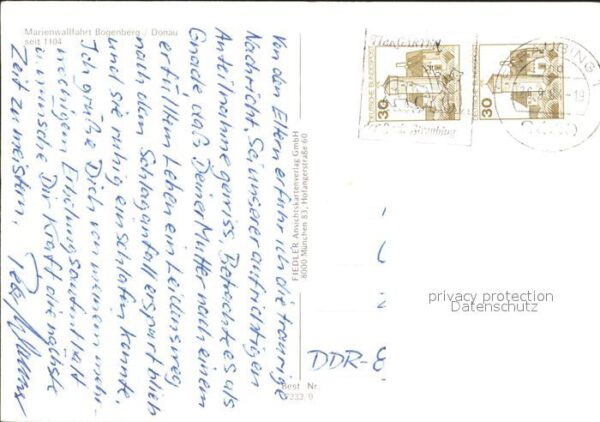 Marienwallfahrt Bogenberg / Donau
seit 1104
Von den Eltern erfuhr ich die traurige
Nachricht. Sei unserer aufrichtigen
Anteilnahme gewiss. Betrachte es als
Gnade daß Deiner Mutter nach einem
erfüllten Leben ein Leidensweg
nach dem Schlaganfall erspart blieb
und sie ruhig einschlafen konnte.
Ich grüße Dich von meinem mehr-
wöchigen Erholungsaufenthalt
u. wünsche Dir Kraft die nächste
Zeit zu meistern.
FIEDLER Ansichtskartenverlag GmbH
8000 München 83, Hofangerstraße 60
Best Nr.
DEUTSCHE BUNDESPOST
30
DEUTSCHE BUNDESPOST
30
Straubing
UBING 1
DDR-8
privacy protection
Datenschutz